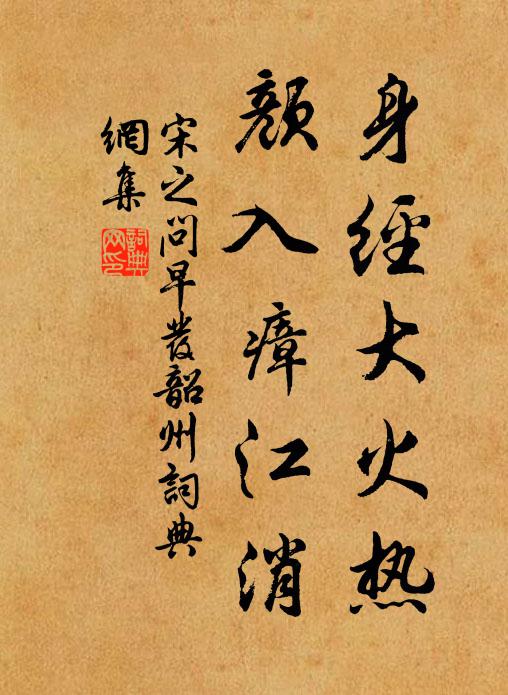 身經大火热
颜入瘴江消
宋之问早發韶州詞典
網集
詞典網印